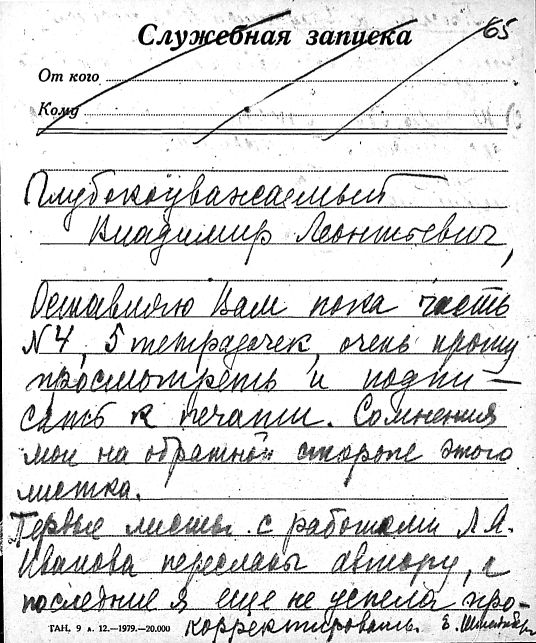 65
Служебная записка
От кого
Кому
Глубокоуважаемый
Владимир Леонтьевич,
Оставляю Вам пока часть
№4, 5 тетрадочек, очень прошу
просмотреть и подпи-
сать к печати. Сомнения
мои на обратной стороне этого
листка.
Первые листы с работами Л.А.
Иванова пересланы автору, а
последние я еще не успела про-
корректировать. Е.
ГАН, 9 л. 12.—1979.—20.000